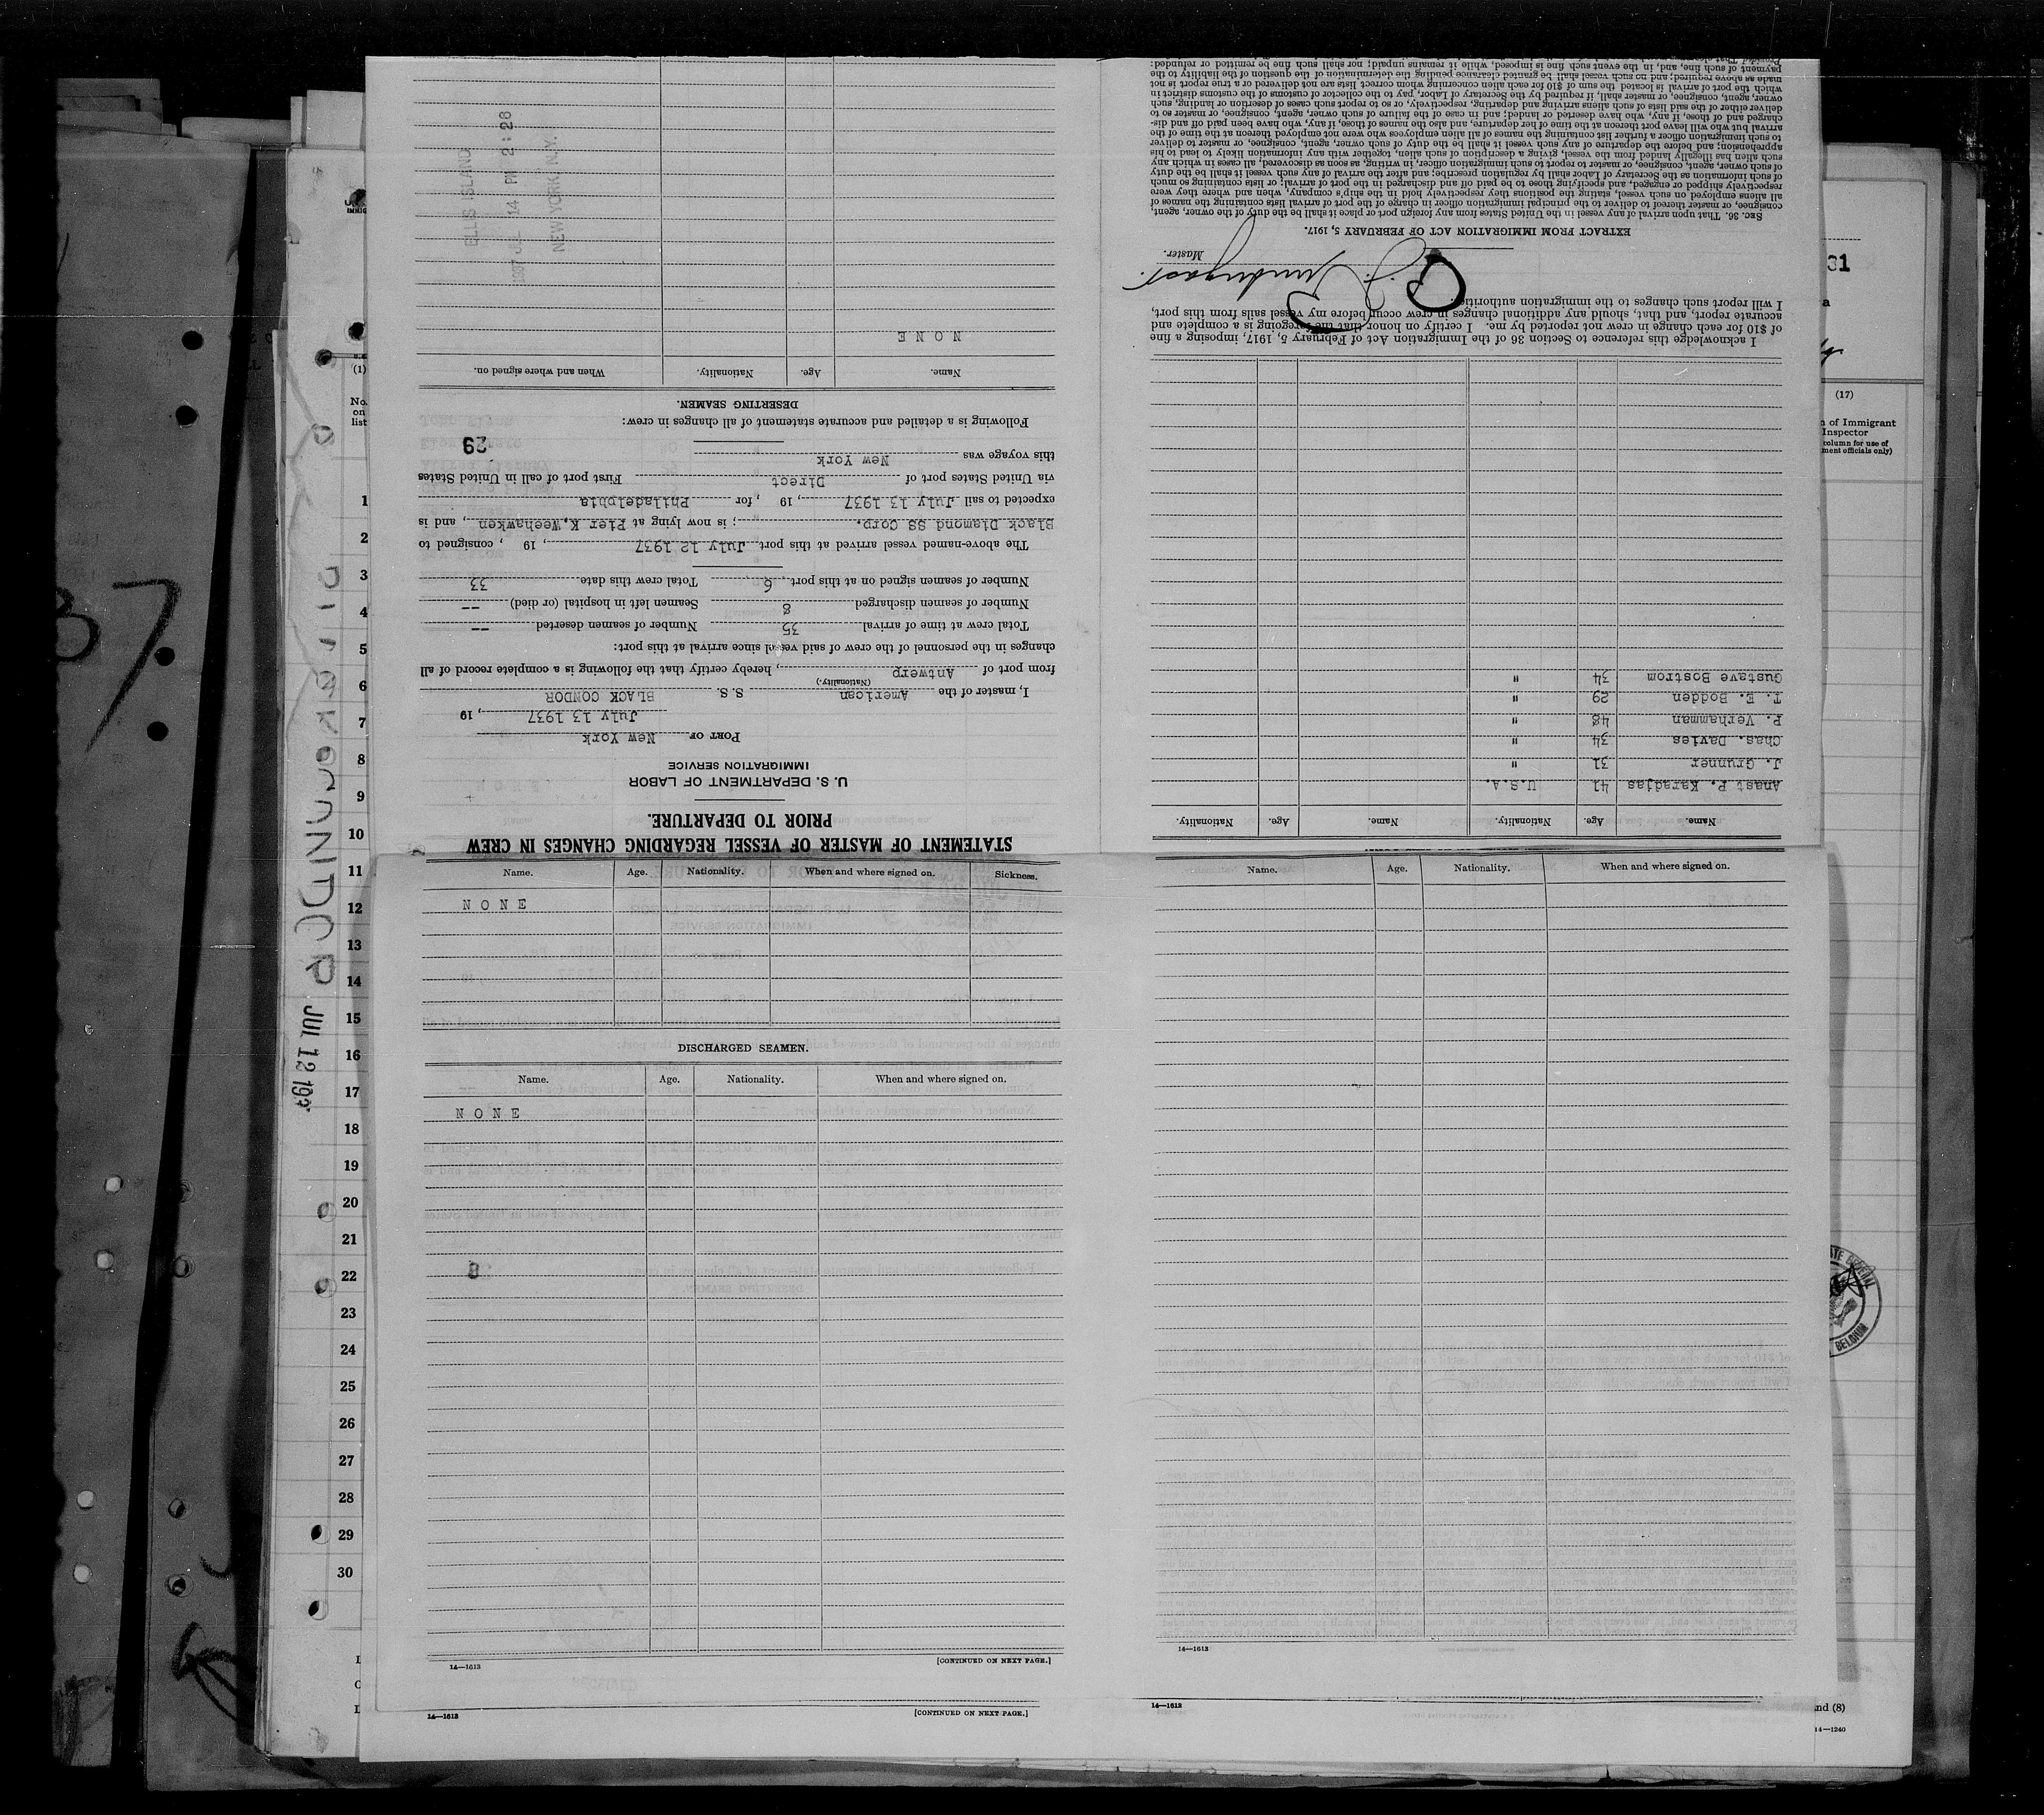 STATEMENT OF MASTER OF VESSEL REGARDING CHANGES IN CREW
PRIOR TO DEPARTURE.
U. S. DEPARTMENT OF LABOR
IMMIGRATION SERVICE
PORT OF New York
July 13 1937, 19
I, master of the American S. S. BLACK CONDOR
(Nationality.)
from port of Antwerp, hereby certify that the following is a complete record of all
changes in the personnel of the crew of said vessel since arrival at this port:
Total crew at time of arrival 35 Number of seamen deserted --
Number of seamen discharged 8 Seamen left in hospital (or died) --
Number of seamen signed on at this port 6 Total crew this date 33
The above-named vessel arrived at this port July 12 1937, 19 , consigned to
Black Diamond SS Corp.; is now lying at Pier K, Weehawken, and is
expected to sail July 13 1937, 19 , for Philadelphia
via United States port of Direct First port of call in United States
this voyage was New York
29
Following is a detailed and accurate statement of all changes in crew:
DESERTING SEAMEN.
Name. Age. Nationality. When and where signed on.
N O N E
ELLIS ISLAND
1937 JUL 14 PM 2:26
NEW YORK, N.Y.
Name. Age. Nationality. Name. Age. Nationality.
Anast P. Karadjas 41 U.S.A.
J. Grunner 31 "
Chas. Davies 34 "
P. Verhamman 48 "
T. E. Bodden 29 "
Gustave Bostrom 34 "
I acknowledge this reference to Section 36 of the Immigration Act of February 5, 1917, imposing a fine
of $10 for each change in crew not reported by me. I certify on honor that the foregoing is a complete and
accurate report, and, that, should any additional changes in crew occur before my vessel sails from this port,
I will report such changes to the immigration authorities.
Master.
EXTRACT FROM IMMIGRATION ACT OF FEBRUARY 5, 1917.
SEC. 36. That upon arrival of any vessel in the United States from any foreign port or place it shall be the duty of the owner, agent,
consignee, or master thereof to deliver to the principal immigration officer in charge of the port of arrival lists containing the names of
all aliens employed on such vessel, stating the positions they respectively hold in the ship's company, when and where they were
respectively shipped or engaged, and specifying those to be paid off and discharged in the port of arrival; or lists containing so much
of such information as the Secretary of Labor shall by regulation prescribe; and after the arrival of any such vessel it shall be the duty
of such owner, agent, consignee, or master to report to such immigration officer, in writing, as soon as discovered, all cases in which any
such alien has illegally landed from the vessel, giving a description of such alien, together with any information likely to lead to his
apprehension; and before the departure of any such vessel it shall be the duty of such owner, agent, consignee, or master to deliver
to such immigration officer a further list containing the names of all alien employees who were not employed thereon at the time of the
arrival but who will leave port thereon at the time of her departure, and also the names of those, if any, who have been paid off and dis-
charged and of those, if any, who have deserted or landed; and in case of the failure of such owner, agent, consignee, or master so to
deliver either of the said lists of such aliens arriving and departing, respectively, or so to report such cases of desertion or landing, such
owner, agent, consignee, or master shall, if required by the Secretary of Labor, pay to the collector of customs of the customs district in
which the port of arrival is located the sum of $10 for each alien concerning whom correct lists are not delivered or a true report is not
made as above required; and no such vessel shall be granted clearance pending the determination of the question of the liability to the
payment of such fine, and, in the event such fine is imposed, while it remains unpaid; nor shall such fine be remitted or refunded:
Name. Age. Nationality. When and where signed on. Sickness.
N O N E
DISCHARGED SEAMEN.
Name. Age. Nationality. When and where signed on.
N O N E
14—1613 [CONTINUED ON NEXT PAGE.]
14—1613 [CONTINUED ON NEXT PAGE.]
Name. Age. Nationality. When and where signed on.
14—1613
14—1613
(1)
No.
on
list
1
2
3
4
5
6
7
8
9
10
11
12
13
14
15
16
17
18
19
20
21
22
23
24
25
26
27
28
29
30
JUL 12 193
37
31
(17)
of Immigrant
Inspector
column for use of
ment officials only)
BELGIUM
nd (8)
14—1240